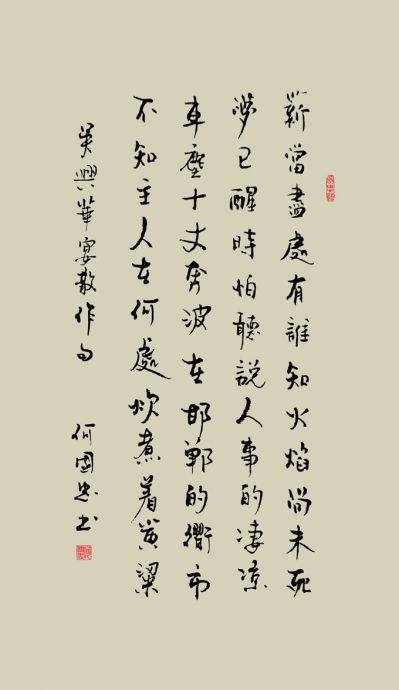 薪當盡處有誰知火焰尚未死
夢已醒時怕聽說人事的淒涼
車塵十丈奔波在邯鄲的衢市
不知主人在何處炊煮着黃粱
吳興華宴散作句 何國忠书